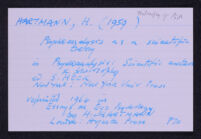 HARTMANN, H. (1959)
Psychoanalysis as a scientific
theory
in Psychoanalysis Scientific method
& philosophy
ed S. HOOK
New York: New York Univ Press
reprinted 1964 in
Essays on Ego Psychology
by H. HARTMANN
London Hogarth Press